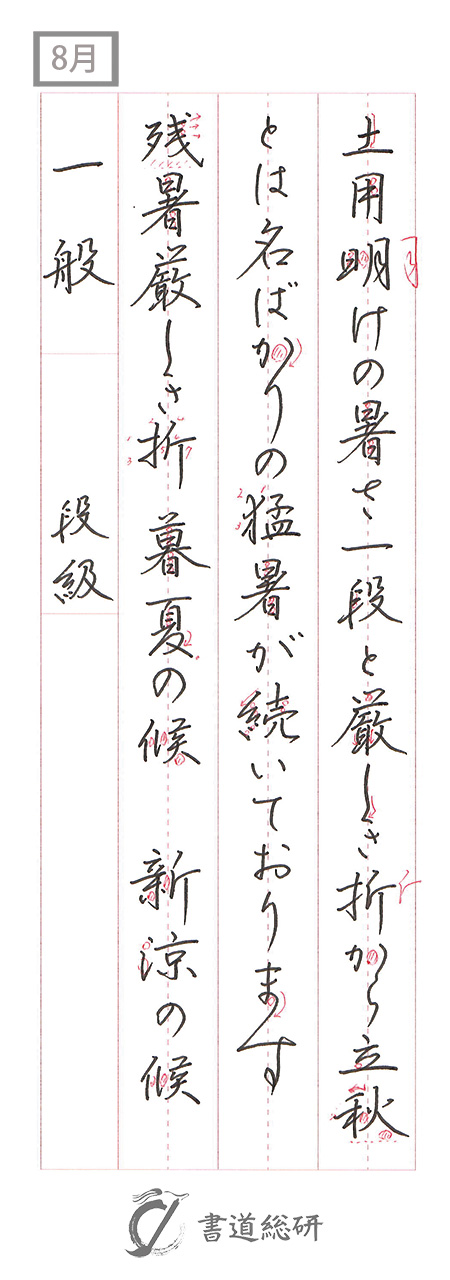 8月
土用明けの暑さ一段と厳しき折から立秋
とは名ばかりの猛暑が続いております
残暑厳しき折 暮夏の候 新涼の候
一般 段級
書道総研